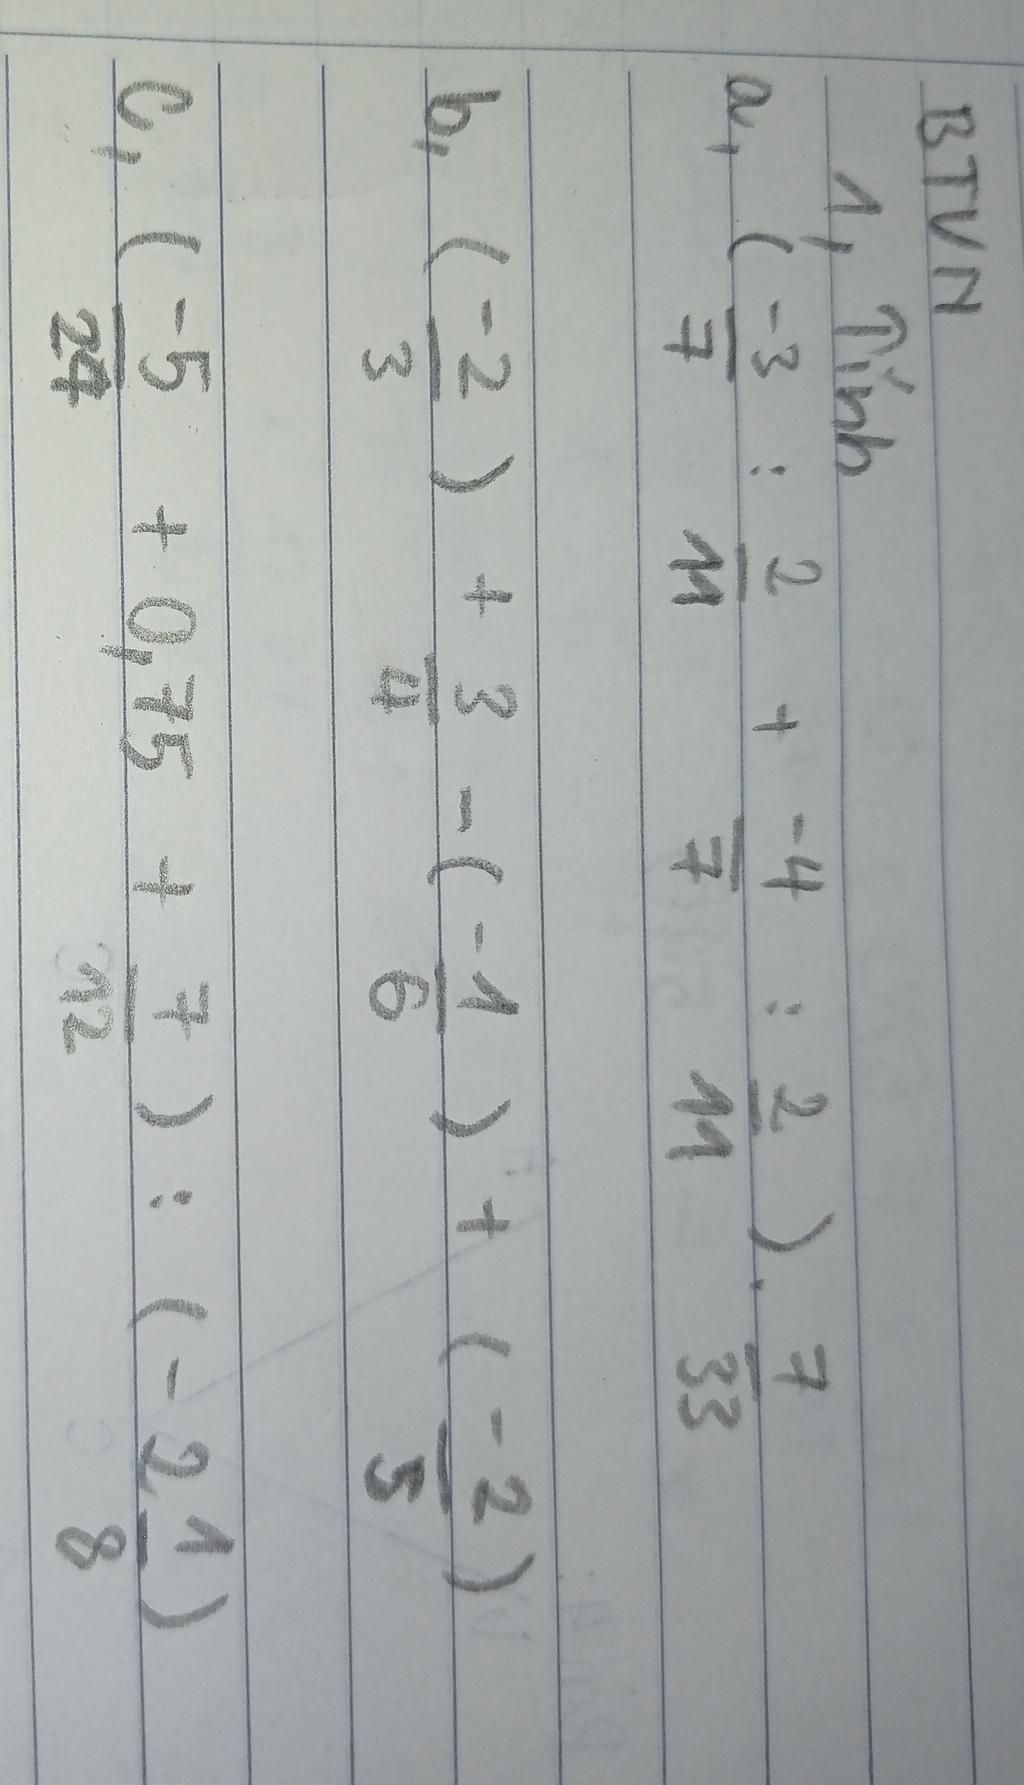 BTVN
1, Tính
a, (-3/7 : 2/11 + -4/7 : 2/11) . 7/33
b, (-2/3) + 3/4 - (-1/6) + (-2/5)
c, (-5/24 + 0,75 + 7/12) : (-2 1/8)